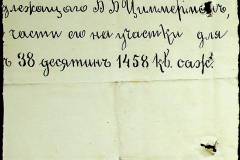 длежащого В В Циммерманъ,
части его на участки для
ъ 38 десятинъ 1458 кв. саж.